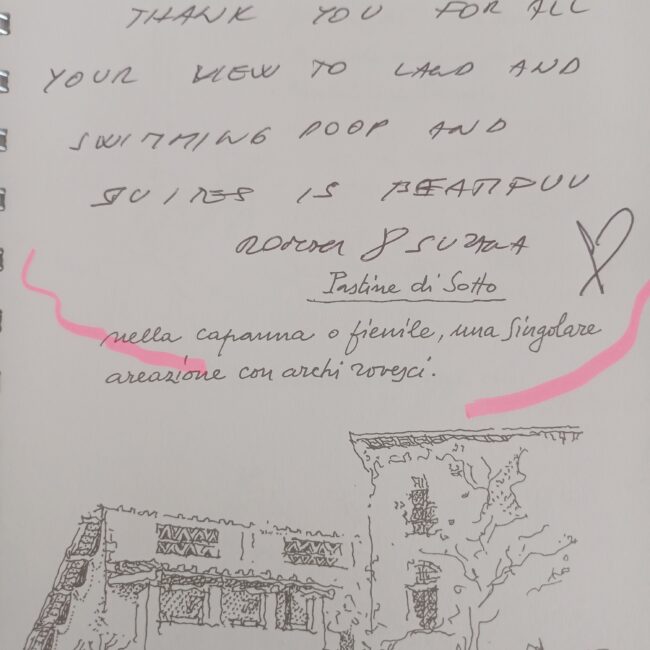 THANK YOU FOR ALL
YOUR VIEW TO LAND AND
SWIMMING POOP AND
SUITES IS
& SUZANA
Pastine di Sotto
nella capanna o fienile, una singolare
areazione con archi rovesci.